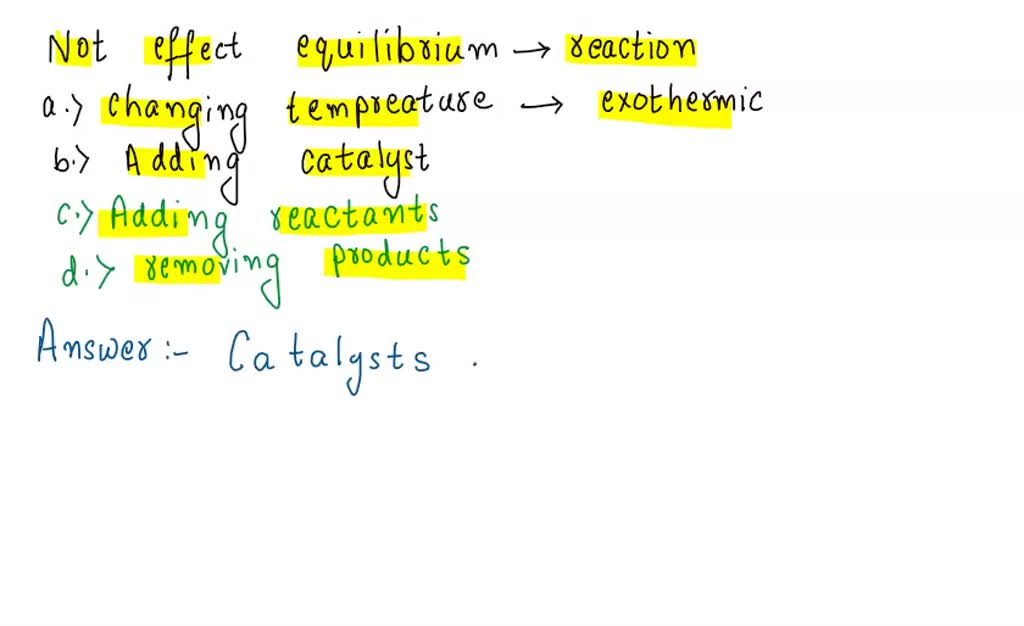 Not effect equilibrium → reaction
a.> changing tempreature → exothermic
b.> Adding catalyst
c.> Adding reactants
d.> removing products
Answer :- Catalysts .